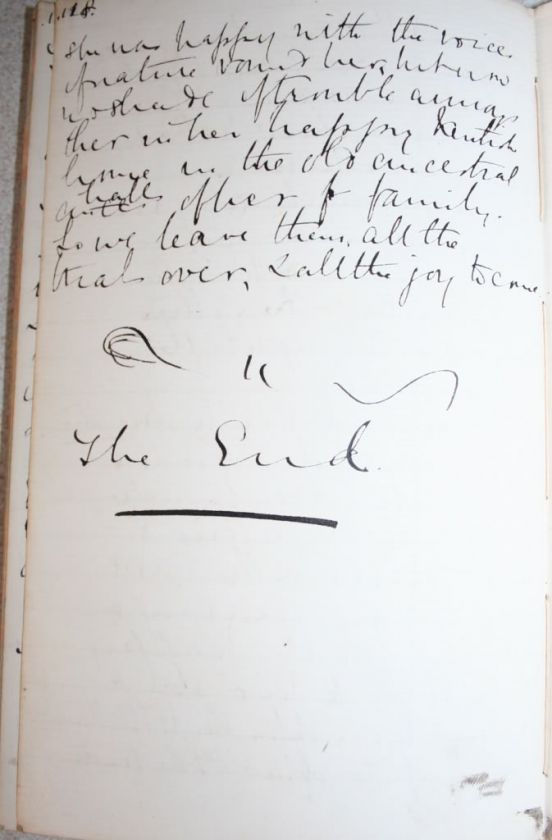 she was happy with the voice
of nature round her, but now
no shade of trouble annoy
her in her happy Kentish
home in the old ancestral
halls of her family.
So we leave them, all the
trials over, & all the joy to come.
"
The End.